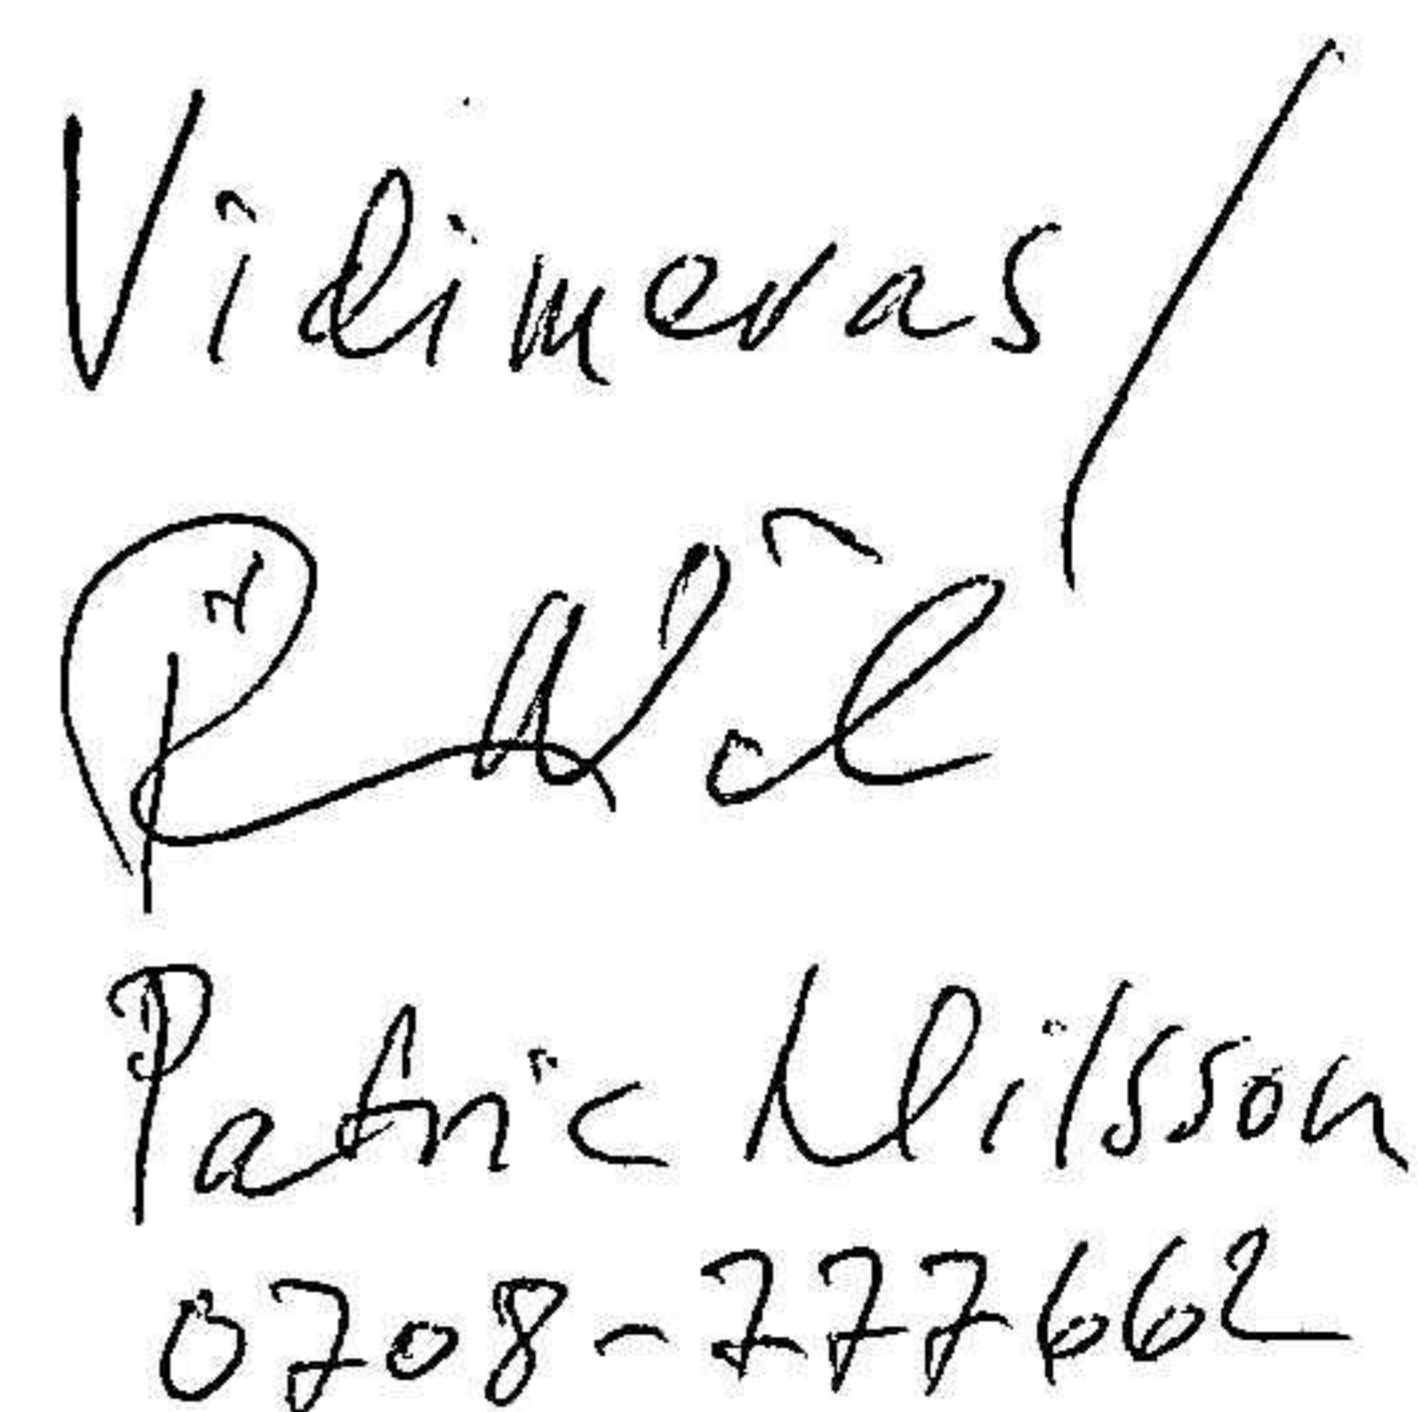 Vidimeras
Patric Nilsson
0708-777662